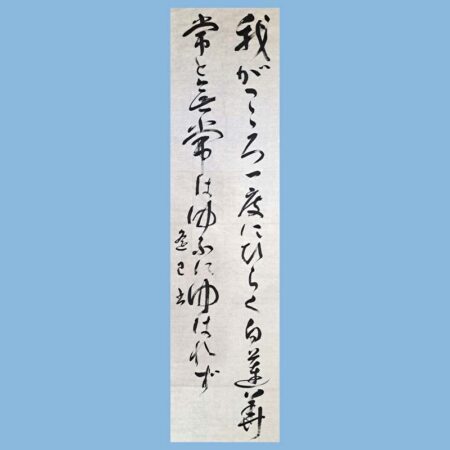 我がこゝろ一度にひらく白蓮華
常と無常はゆふにゆはれず